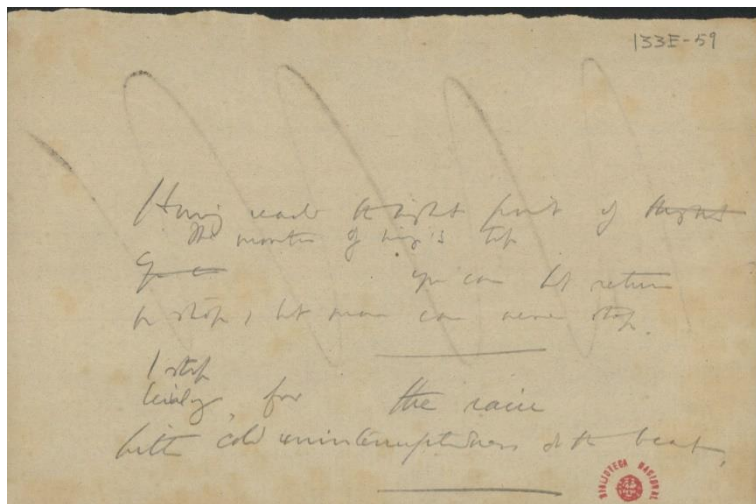 133E-59
Having reach the highest point of
The mountain of 's top
you can but return
or stop, but man can never stop.
I stop
for the rain
With cold uninterruptedness the beat,
BIBLIOTECA NACIONAL